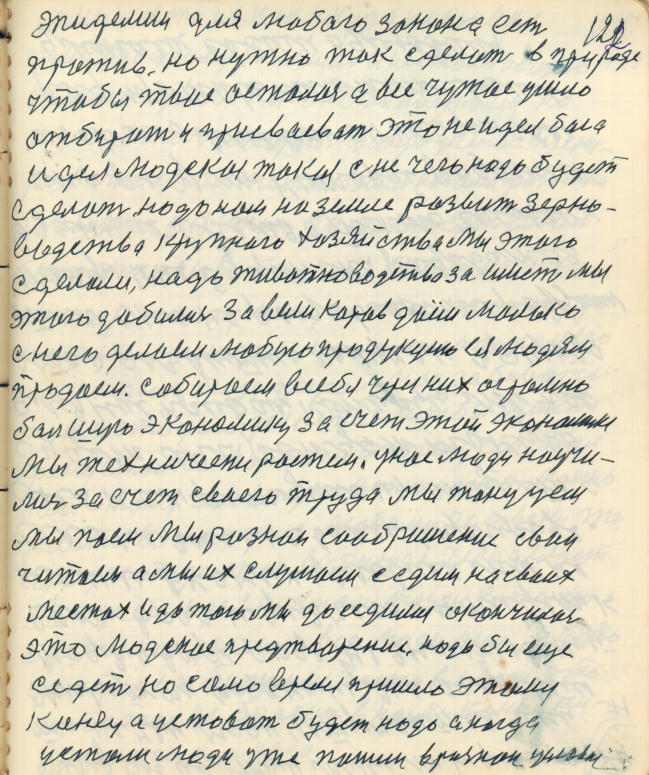 122
эпидемии для любого закона ест
против, но нужно так сделат в природе
чтобы твое осталоя а все чужое ушло
отбират и присваеват это не идея бога
идея людская такая с не чего надо будет
сделат. надо нам на земле развит зерно-
водства крупного хозяйства мы этого
сделали, надо животноводство за имет мы
этого добилис завели каров доим малако
с него делаем любую продукцию людям
продаем. собираем в себя чут них огромно
балшую экономику за счет этой экономики
мы технически растем. у нас люди научи-
лис за счет своего труда мы танцуем
мы поем мы разнаи саабришение сваи
читаем а мы их слушаем седим на сваих
местах и до того мы доседилис окончилося
это людское предтварение. надо бы еще
седет но само время пришло этому
концу а устават будет надо а когда
устали люди уже пошли в разнаи